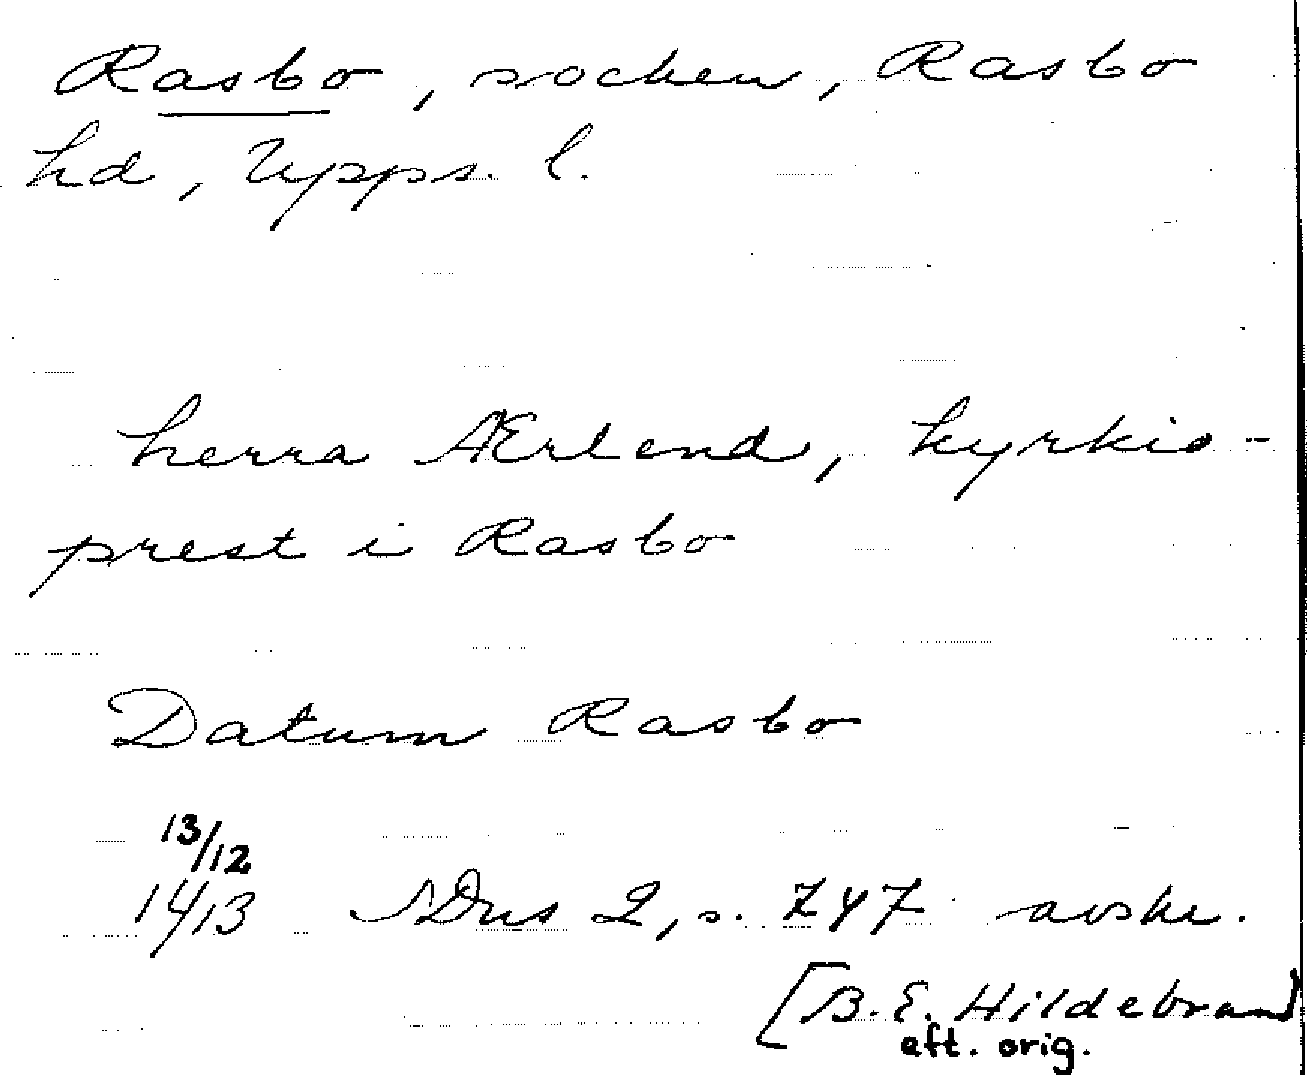 Rasbo, socken, Rasbo
hd, Upps. l.
herra Ærlend, kyrkio-
prest i Rasbo
Datum Rasbo
13/12
1413 SDns 2, s. 747 avskr.
[B.E. Hildebrand
eft. orig.